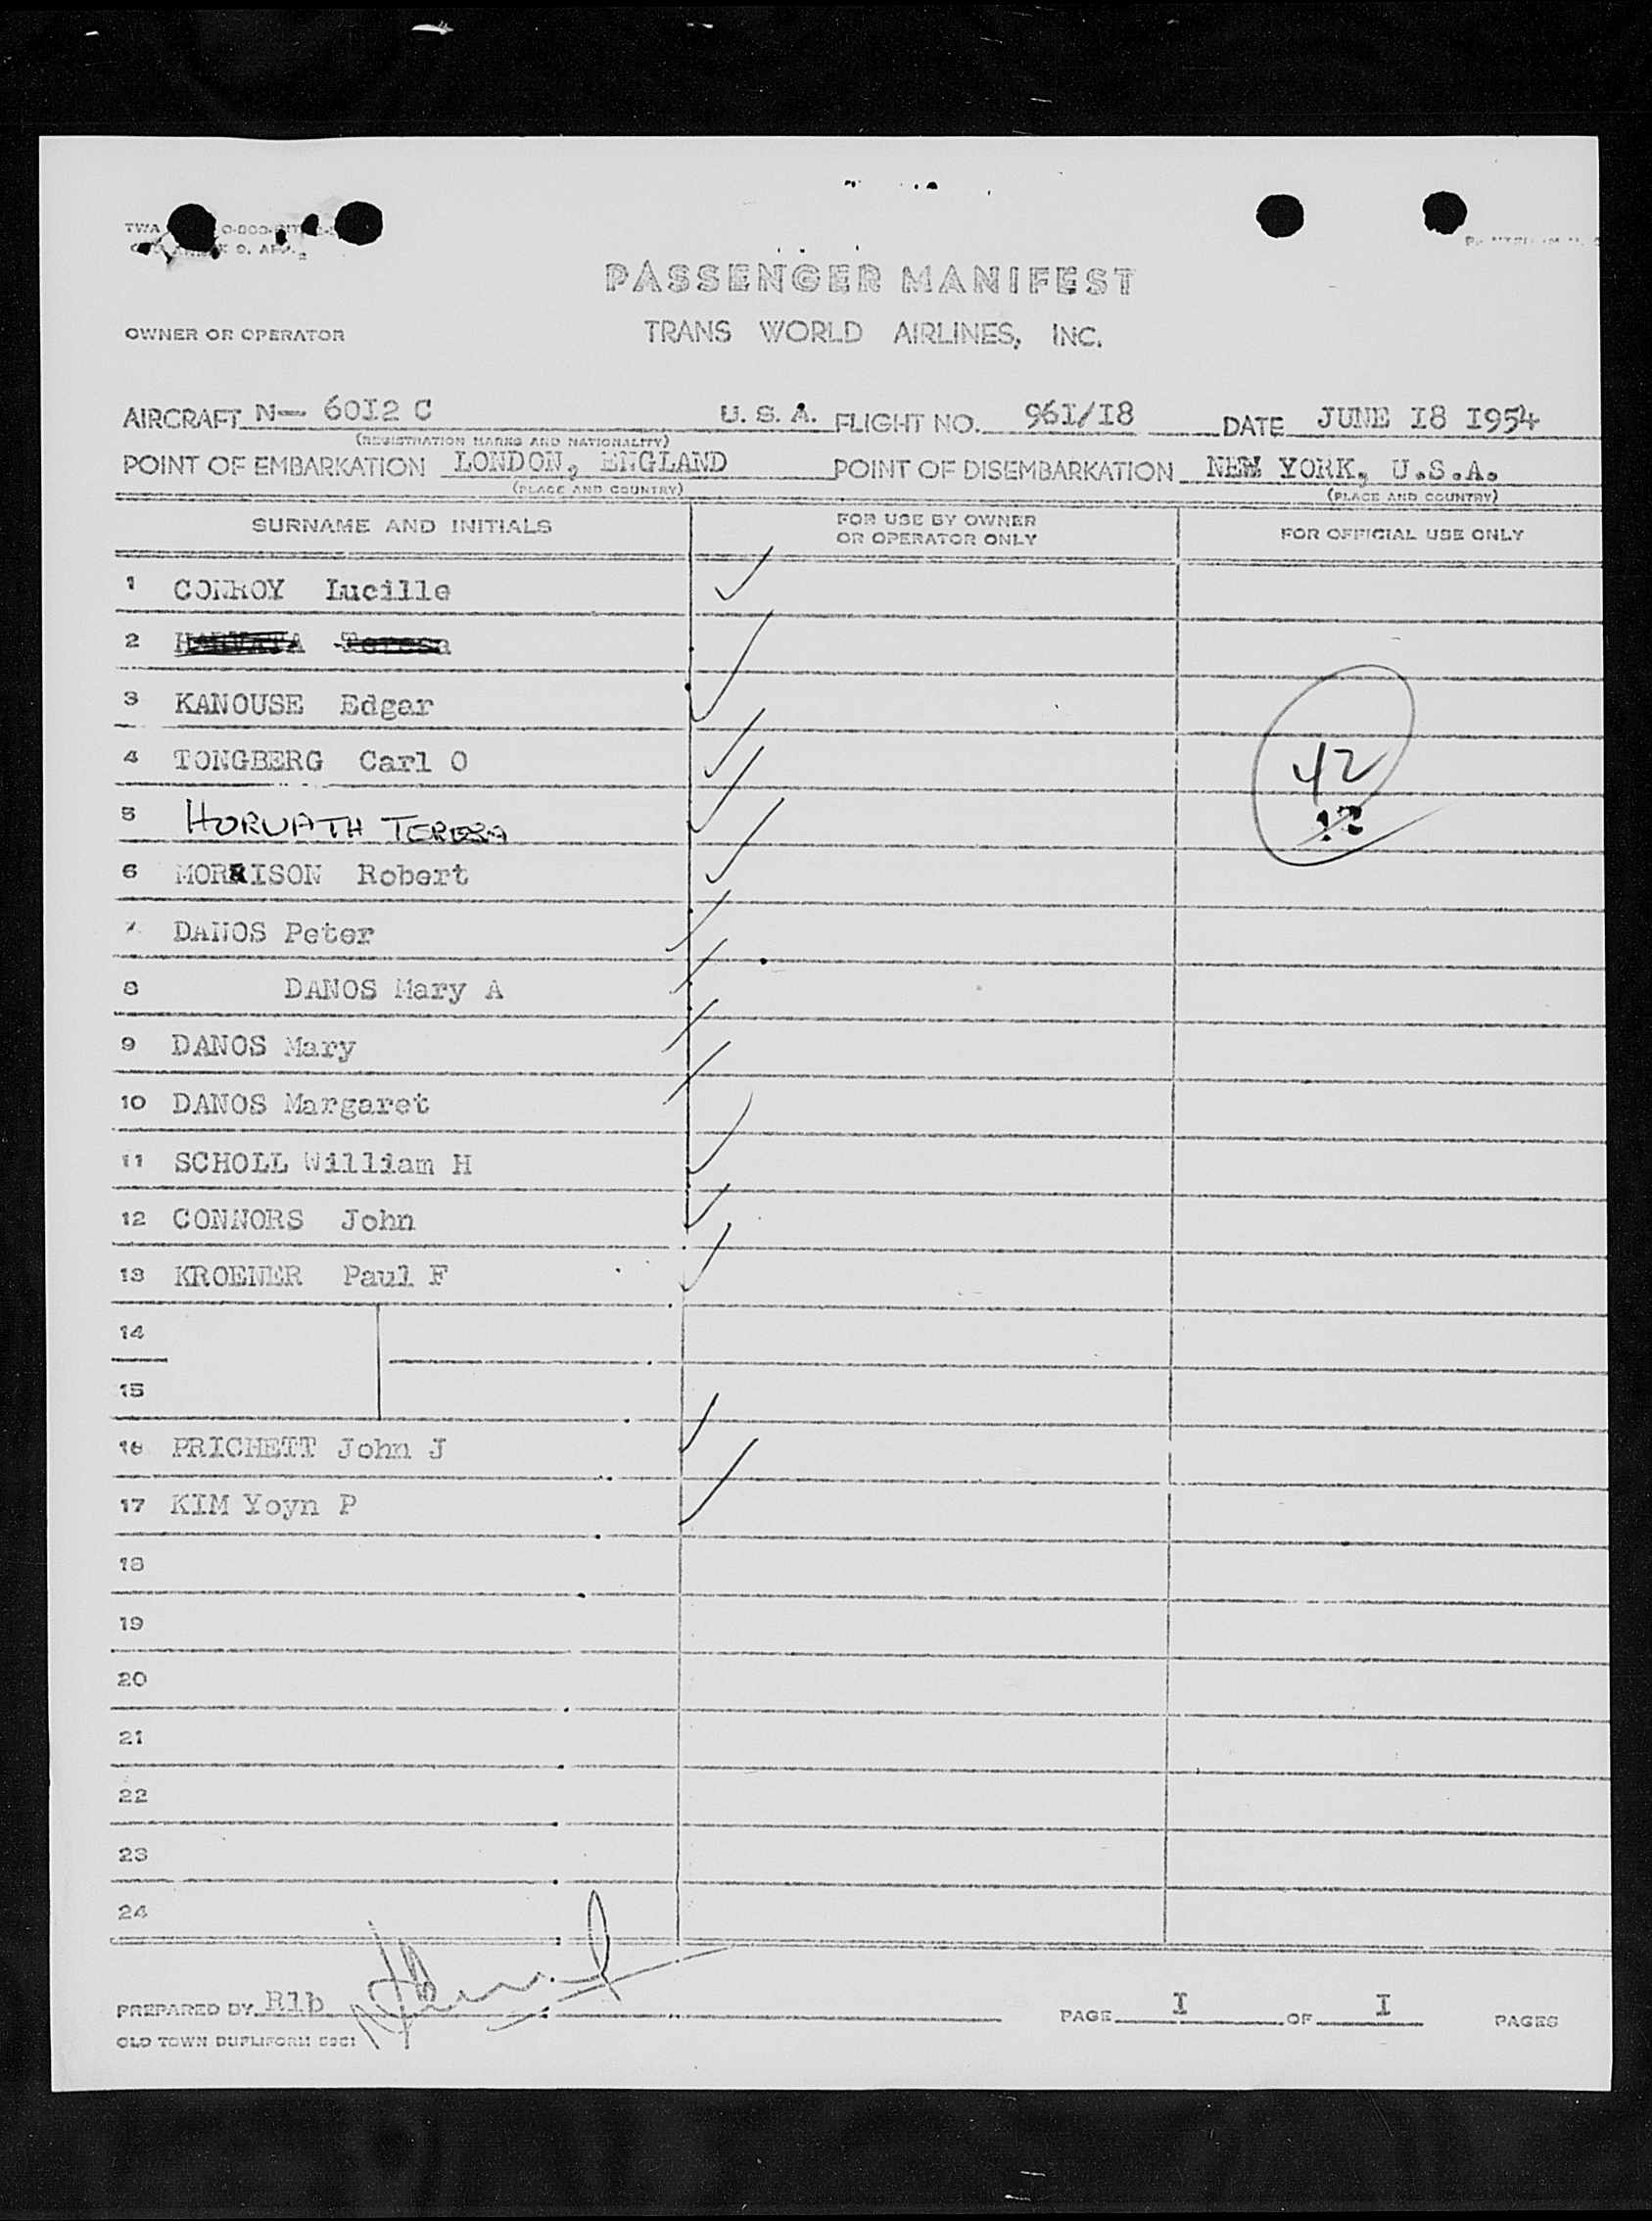 TWA
PASSENGER MANIFEST
OWNER OR OPERATOR TRANS WORLD AIRLINES, INC.
AIRCRAFT N— 6012 C U. S. A. FLIGHT NO. 961/18 DATE JUNE 18 1954
(REGISTRATION MARKS AND NATIONALITY)
POINT OF EMBARKATION LONDON, ENGLAND POINT OF DISEMBARKATION NEW YORK, U.S.A.
(PLACE AND COUNTRY) (PLACE AND COUNTRY)
SURNAME AND INITIALS FOR USE BY OWNER OR OPERATOR ONLY FOR OFFICIAL USE ONLY
1 CONROY Lucille
2 Teresa
3 KANOUSE Edgar
4 TONGBERG Carl O 42
5 HORVATH TERESA
6 MORRISON Robert
7 DANOS Peter
8 DANOS Mary A
9 DANOS Mary
10 DANOS Margaret
11 SCHOLL William H
12 CONNORS John
13 KROENER Paul F
14
15
16 PRICHETT John J
17 KIM Yoyn P
18
19
20
21
22
23
24
PREPARED BY Rlb PAGE I OF I PAGES
OLD TOWN DUPLIFORM